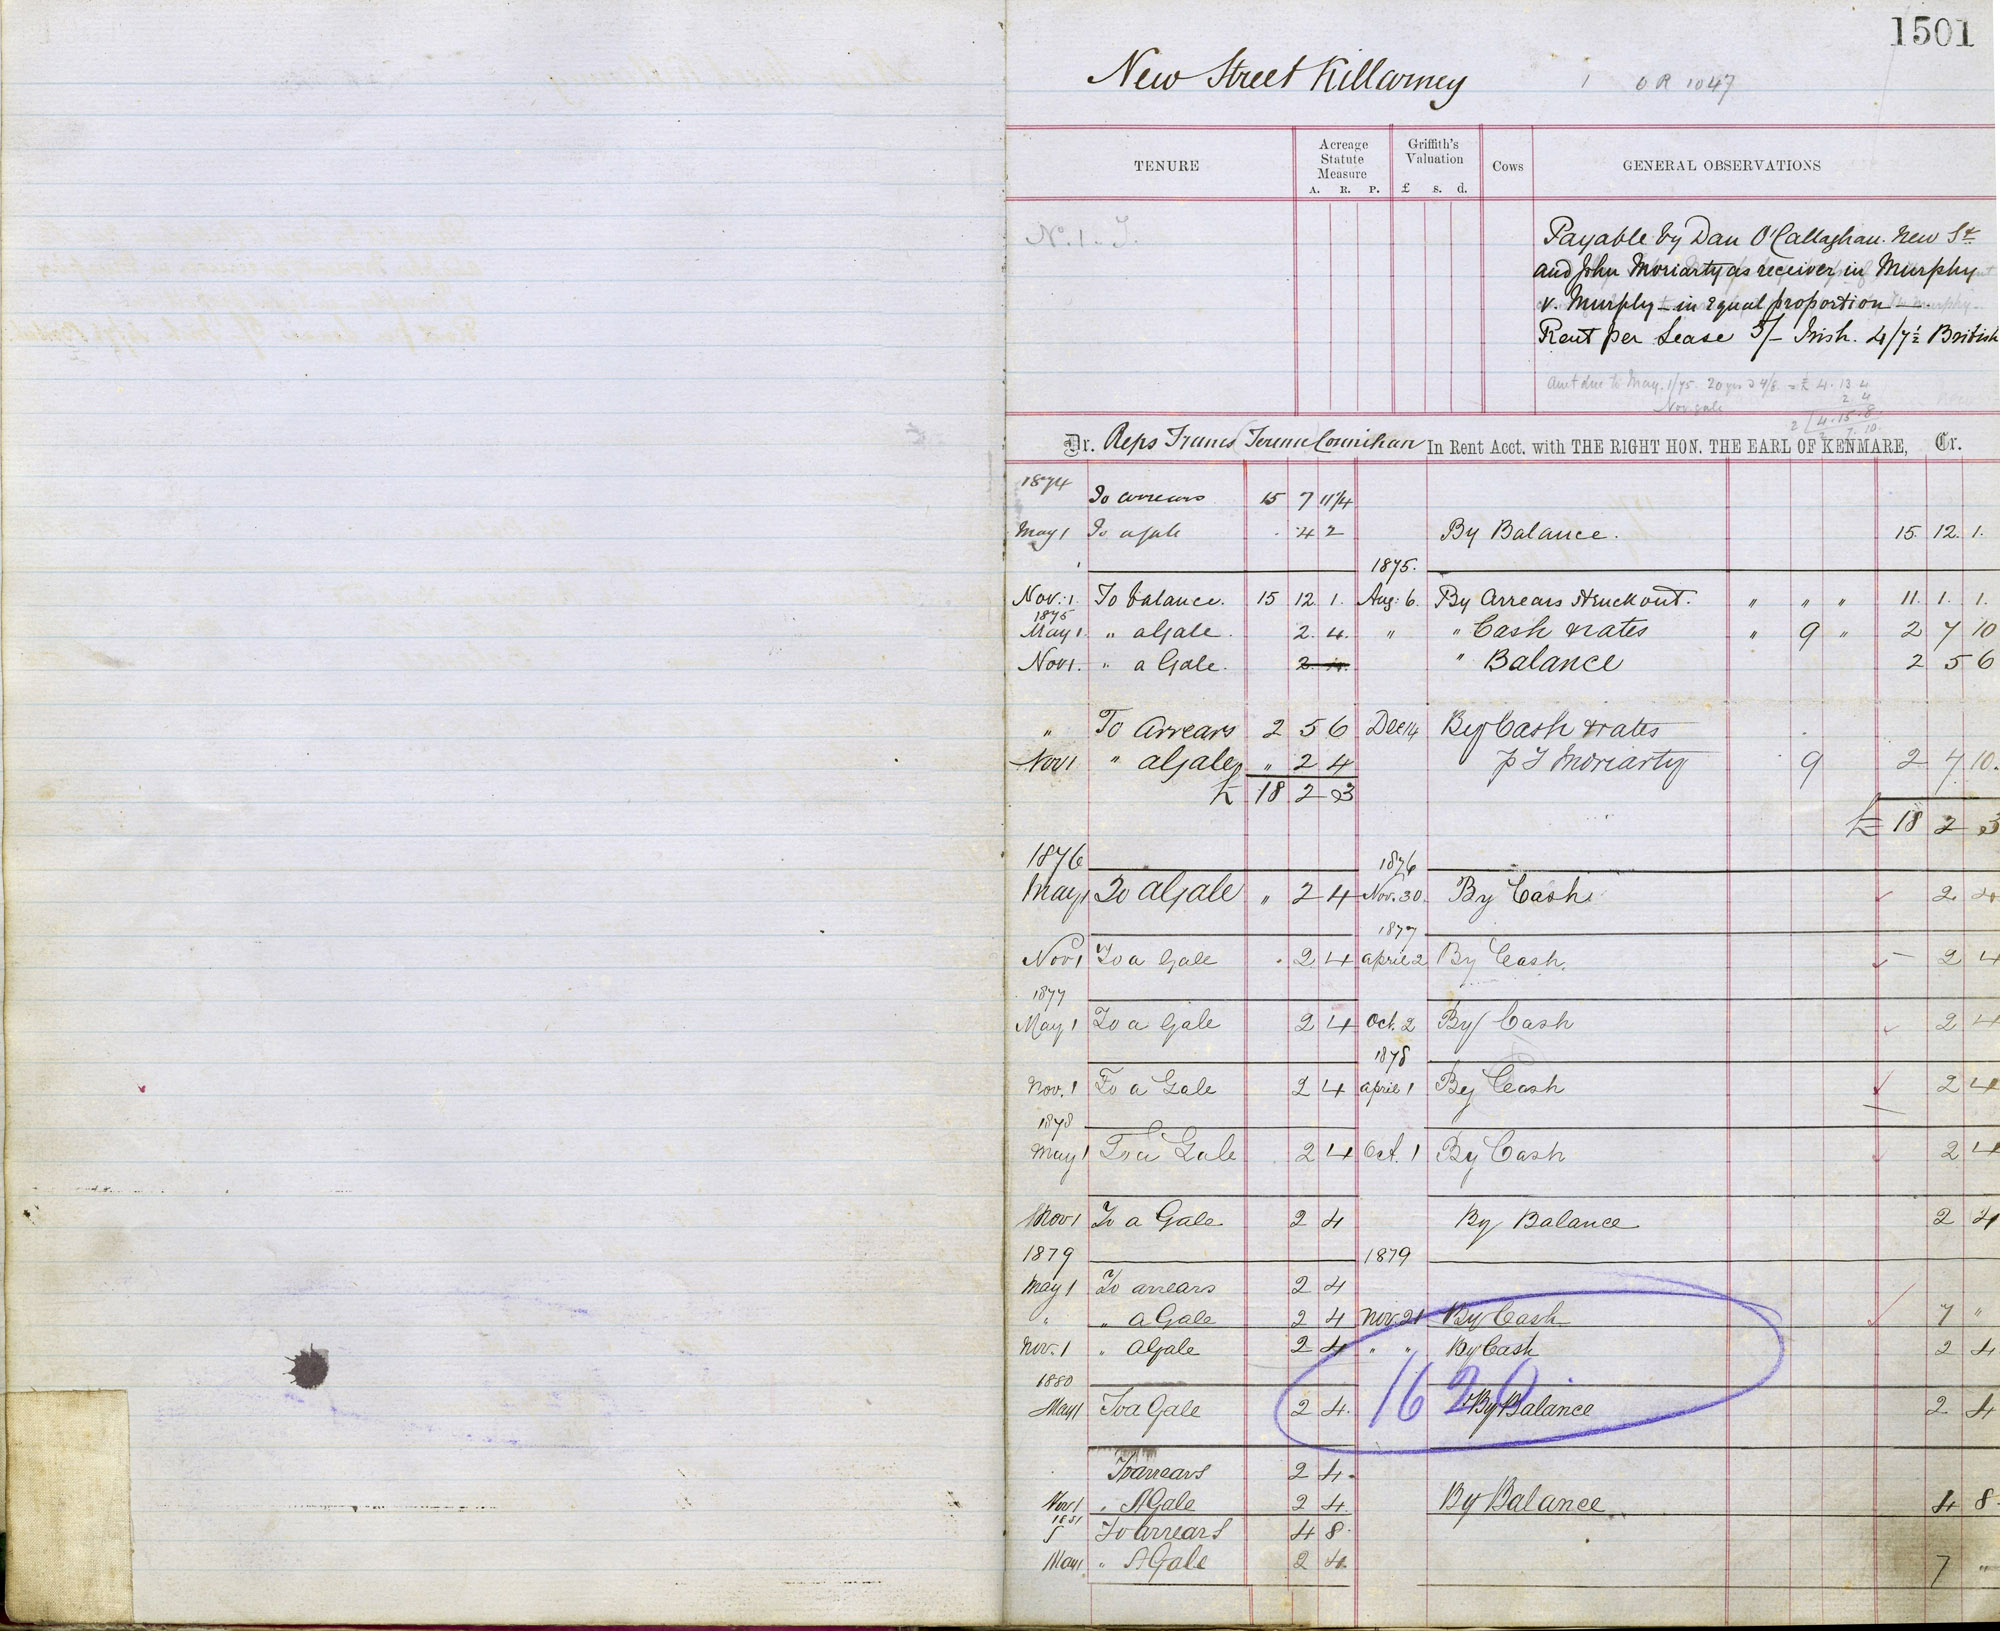 1501
New Street Killarney 1 OR 1047
TENURE Acreage Statute Measure A. R. P. Griffith's Valuation £ s. d. Cows GENERAL OBSERVATIONS
No. 1. J.
Payable by Dan O'Callaghan. New St
and John Moriarty as receiver in Murphy
v. Murphy – in equal proportion —
Rent per Lease 5/- Irish. 4/7½ British
Amt due to May. 1/75. 20 yrs @ 4/8. = £ 4. 13 4
Nov gale 2. 4
2 4. 15. 8.
2. 7. 10.
Dr. Reps Francis Counihan In Rent Acct. with THE RIGHT HON. THE EARL OF KENMARE, Cr.
1874
To arrears 15 7 11¼
May 1 To a gale 4 2 By Balance. 15. 12. 1.
1875.
Nov: 1. To balance. 15 12. 1. Aug: 6. By Arrears struck out. " " " 11. 1. 1.
1875
May 1. " a Gale. 2. 4. " " Cash & rates " 9 " 2 7 10
Nov 1. " a Gale. 2. 4. " Balance 2 5 6
" To Arrears 2 5 6 Dec 14 By Cash & rates
Nov 1 " a Gale " 2 4 p J Moriarty 9 2 7 10.
£ 18 2 3
£ 18 2 3
1876 1876
May 1 To a Gale " 2 4 Nov. 30. By Cash 2. 4
1877
Nov 1 To a Gale 2. 4 April 2 By Cash. 2 4
1877
May 1 To a Gale 2 4 Oct. 2 By Cash 2 4
1878
Nov. 1 To a Gale 2 4 April 1 By Cash 2 4
1878
May 1 To a Gale 2 4 Oct. 1 By Cash 2 4
Nov 1 To a Gale 2 4 By Balance 2 4
1879 1879
May 1 To arrears 2 4
" " a Gale 2 4 Nov. 21 By Cash 7 "
Nov. 1 " a Gale 2 4 " " By Cash 2 4
1880
May 1 To a Gale 2 4. 1620 By Balance 2 4
To arrears 2 4.
Nov 1 " A Gale 2 4. By Balance 4 8.
1881
To arrears 4 8.
May 1 " A Gale 2 4. 7 "